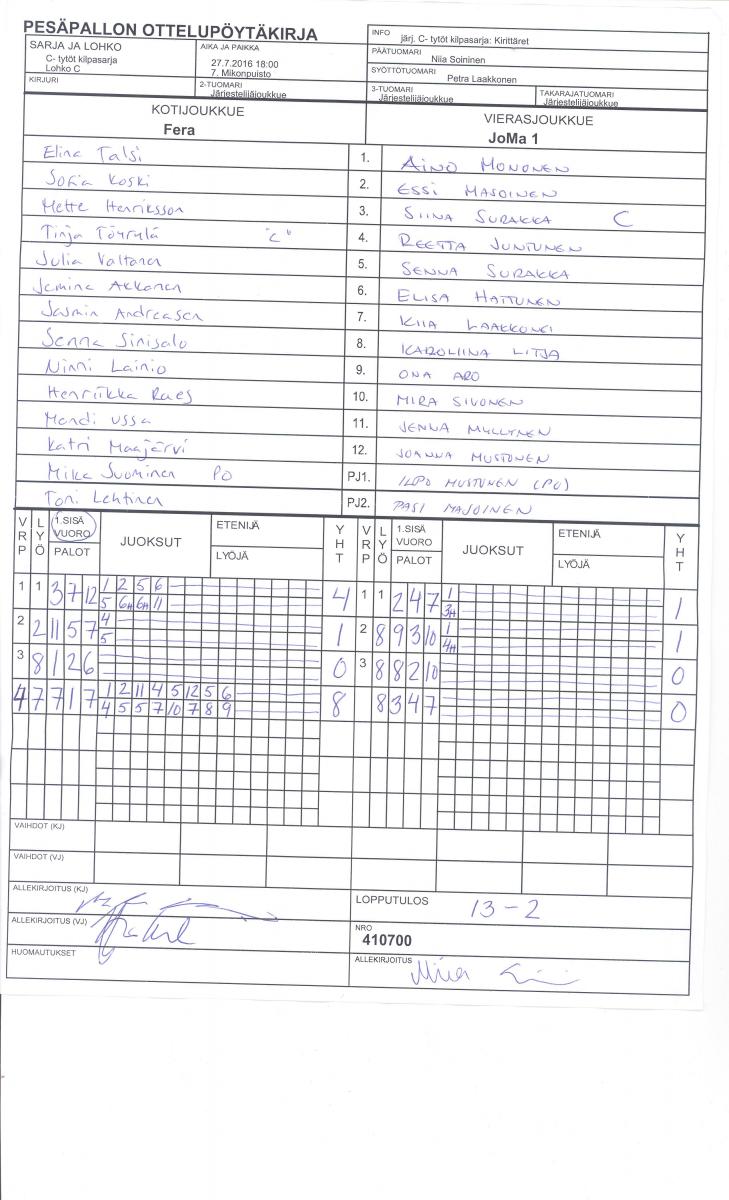 PESÄPALLON OTTELUPÖYTÄKIRJA
INFO järj. C- tytöt kilpasarja: Kirittäret
SARJA JA LOHKO
C- tytöt kilpasarja
Lohko C
AIKA JA PAIKKA
27.7.2016 18:00
7. Mikonpuisto
PÄÄTUOMARI
Niia Soininen
SYÖTTÖTUOMARI
Petra Laakkonen
KIRJURI
2-TUOMARI
Järjestelijäjoukkue
3-TUOMARI
Järjestelijäjoukkue
TAKARAJATUOMARI
Järjestelijäjoukkue
KOTIJOUKKUE
Fera
VIERASJOUKKUE
JoMa 1
Elina Talsi 1. AINO MONONEN
Sofia Koski 2. ESSI MAJOINEN
Mette Henriksson 3. SIINA SURAKKA C
Tinja Töyrylä "C" 4. REETTA JUNTUNEN
Julia Valtanen 5. SENNA SURAKKA
Jemina Akkanen 6. ELISA HATTUNEN
Jasmin Andreasen 7. KIIA LAAKKONEN
Jenna Sinisalo 8. KAROLIINA LITJA
Ninni Lainio 9. ONA ARO
Henriikka Raes 10. MIRA SIVONEN
Mandi Ussa 11. JENNA MYLLYNEN
Katri Maajärvi 12. JOANNA MUSTONEN
Mika Suominen PO PJ1. ILPO MUSTONEN (PU)
Toni Lehtinen PJ2. PASI MAJOINEN
VRP LYÖ 1.SISÄ VUORO PALOT JUOKSUT ETENIJÄ LYÖJÄ YHT VRP LYÖ 1.SISÄ VUORO PALOT JUOKSUT ETENIJÄ LYÖJÄ YHT
1 1 3 7 12 1 2 5 6 4 1 1 2 4 7 1 1
5 6H 6H 11 3H
2 2 11 5 7 4 1 2 8 9 3 10 1 1
5 4H
3 8 1 2 6 0 3 8 8 2 10 0
4 7 7 1 7 1 2 11 4 5 12 5 6 8 8 3 4 7 0
4 5 5 7 10 7 8 9
VAIHDOT (KJ)
VAIHDOT (VJ)
ALLEKIRJOITUS (KJ)
LOPPUTULOS 13-2
ALLEKIRJOITUS (VJ)
NRO
410700
HUOMAUTUKSET
ALLEKIRJOITUS